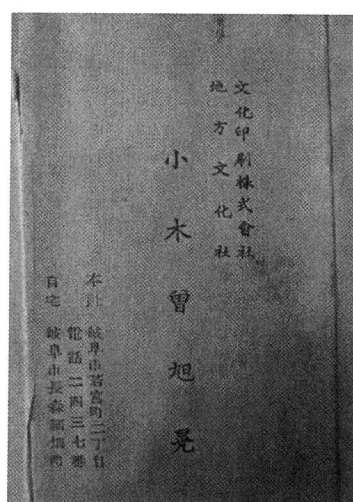 文化印刷株式會社
地方文化社
小木曽旭晃
本社 岐阜市若宮町二丁目
電話二四三七番
自宅 岐阜市長森